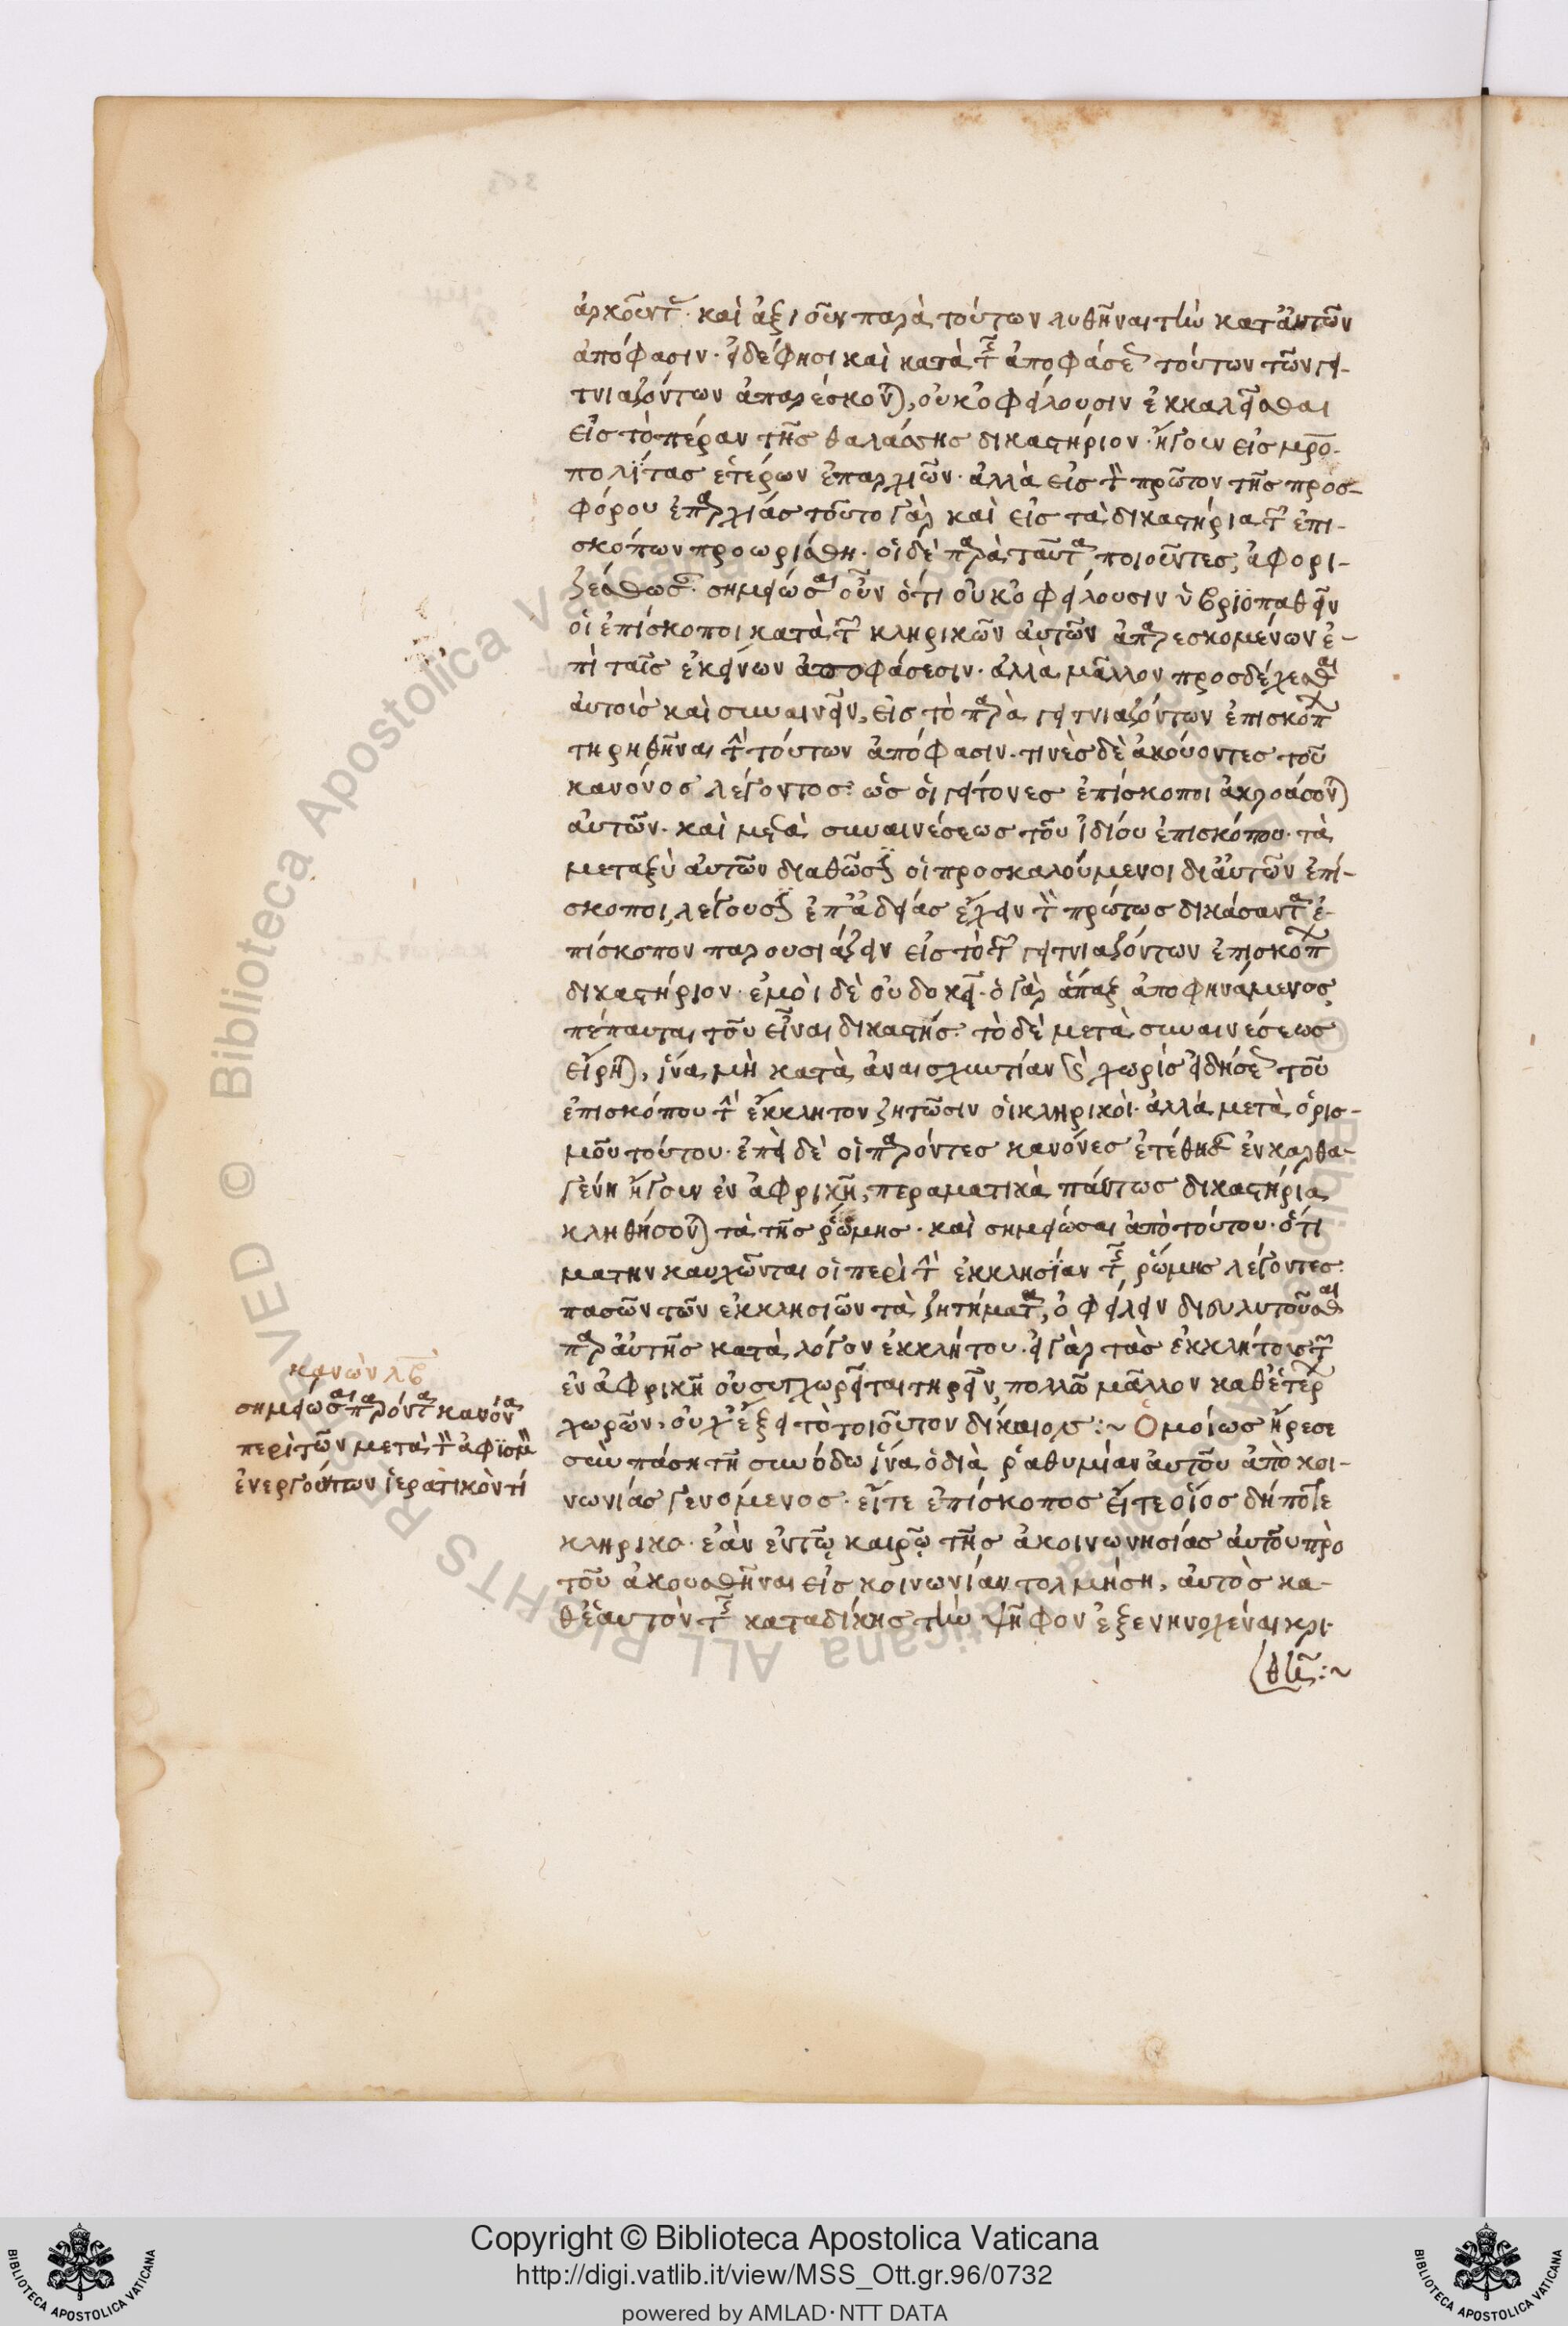 ἀρκοῦντ. καὶ ἀξιοῦν παρὰ τούτων λυθῆναι τὴν κατ αὐτῶν
ἀπόφασιν. εἰ δέ φησι καὶ κατὰ τ ἀποφάσε τούτων τῶν γει-
τνιαζόντων ἀπαρέσκον, οὐκ ὀφείλουσιν ἐκκαλεῖσθαι
εἰς τὸ πέραν τῆς θαλάσσης δικαστήριον. ἤγουν εἰς μρο-
πολίτας ἑτέρων ἐπαρχιῶν. ἀλλὰ εἰς τ πρῶτον τῆς προσ-
φόρου ἐπαρχίας τοῦτο γὰρ καὶ εἰς τὰ δικαστήρια τ ἐπι-
σκόπων προωρίσθη. οἱ δὲ παρὰ ταῦτα ποιοῦντες, ἀφορι-
ζέσθωσ. σημείωσαι οὖν ὅτι οὐκ ὀφείλουσιν ὑβριοπαθεῖν
οἱ ἐπίσκοποι κατὰ τ κληρικῶν αὐτῶν ἀπαρεσκομένων ἐ-
πὶ ταῖς ἐκείνων ἀποφάσεσιν. ἀλλὰ μᾶλλον προσδέχεσθαι
αὐτοὶς καὶ συναινεῖν, εἰς τὸ παρὰ γειτνιαζόντων ἐπισκόπ
τηρηθῆναι τ τούτων ἀπόφασιν. τινὲς δὲ ἀκούοντες τοῦ
κανόνος λέγοντος· ὡς οἱ γείτονες ἐπίσκοποι ἀκροάσον
αὐτῶν. καὶ μετὰ συναινέσεως τοῦ ἰδίου ἐπισκόπου. τὰ
μεταξὺ αὐτῶν διαθῶσ οἱ προσκαλούμενοι δι αὐτῶν ἐπί-
σκοποι, λέγουσ ἐπ ἀδείας ἔχειν τ πρώτως δικάσαντα ἐ-
πίσκοπον παρουσιάζειν εἰς τὸ τ γειτνιαζόντων ἐπισκόπ
δικαστήριον. ἐμοὶ δὲ οὐ δοκεῖ. ὁ γὰρ ἅπαξ ἀποφηνάμενος
πέπαυται τοῦ εἶναι δικαστής. τὸ δὲ μετὰ συναινέσεως
εἴρη, ἵνα μὴ κατὰ ἀναισχυντίαν καὶ χωρὶς εἰδήσε τοῦ
ἐπισκόπου τ ἔκκλητον ζητῶσιν οἱ κληρικοὶ. ἀλλὰ μετὰ ὁρισ-
μοῦ τούτου. ἐπεὶ δὲ οἱ παρόντες κανόνες ἐτέθησ ἐν καρθα-
γένη ἤγουν ἐν ἀφρικῆ, περαματικὰ πάντως δικαστήρια
κληθήσον τὰ τῆς ῥώμης. καὶ σημείωσαι ἀπὸ τούτου. ὅτι
ματην καυχῶνται οἱ περὶ τ ἐκκλησίαν τ ῥώμης λέγοντες·
πασῶν τῶν ἐκκλησιῶν τὰ ζητήματα, ὀφείλειν διευλυτοῦσθαι
παρ αὐτῆς κατὰ λόγον ἐκκλήτου. εἰ γὰρ τὰς ἐκκλήτους τ
ἐν ἀφρικῆ οὐ συγχωρεῖται τηρεῖν, πολλῶ μᾶλλον καθ ἑτέρ
χωρῶν, οὐχ ἕξει τὸ τοιοῦτον δίκαιον :~ Ὁμοίως ἤρεσε
σὺν πάση τῆ συνόδω ἵνα ὁ διὰ ῥαθυμίαν αὐτοῦ ἀπὸ κοι-
νωνίας γενόμενος. εἴτε ἐπίσκοπος εἴτε οἷος δήποτε
κληρικο. ἐὰν ἐν τῷ καιρῷ τῆς ἀκοινωνησίας αὐτοῦ πρὸ
τοῦ ἀκουσθῆναι εἰς κοινωνίαν τολμήση, αὐτὸς κα-
θ ἑαυτὸν τ καταδίκης τὴν ψῆφον ἐξενηνοχέναι κρι-
θείη :~
κανὼν
σημείωσαι παρόντα κανόνα
περὶ τῶν μετὰ τ ἀφισμ
ἐνεργούντων ἱερατικόν τί
Copyright © Biblioteca Apostolica Vaticana
http://digi.vatlib.it/view/MSS_Ott.gr.96/0732
powered by AMLAD·NTT DATA
BIBLIOTECA APOSTOLICA VATICANA
BIBLIOTECA APOSTOLICA VATICANA